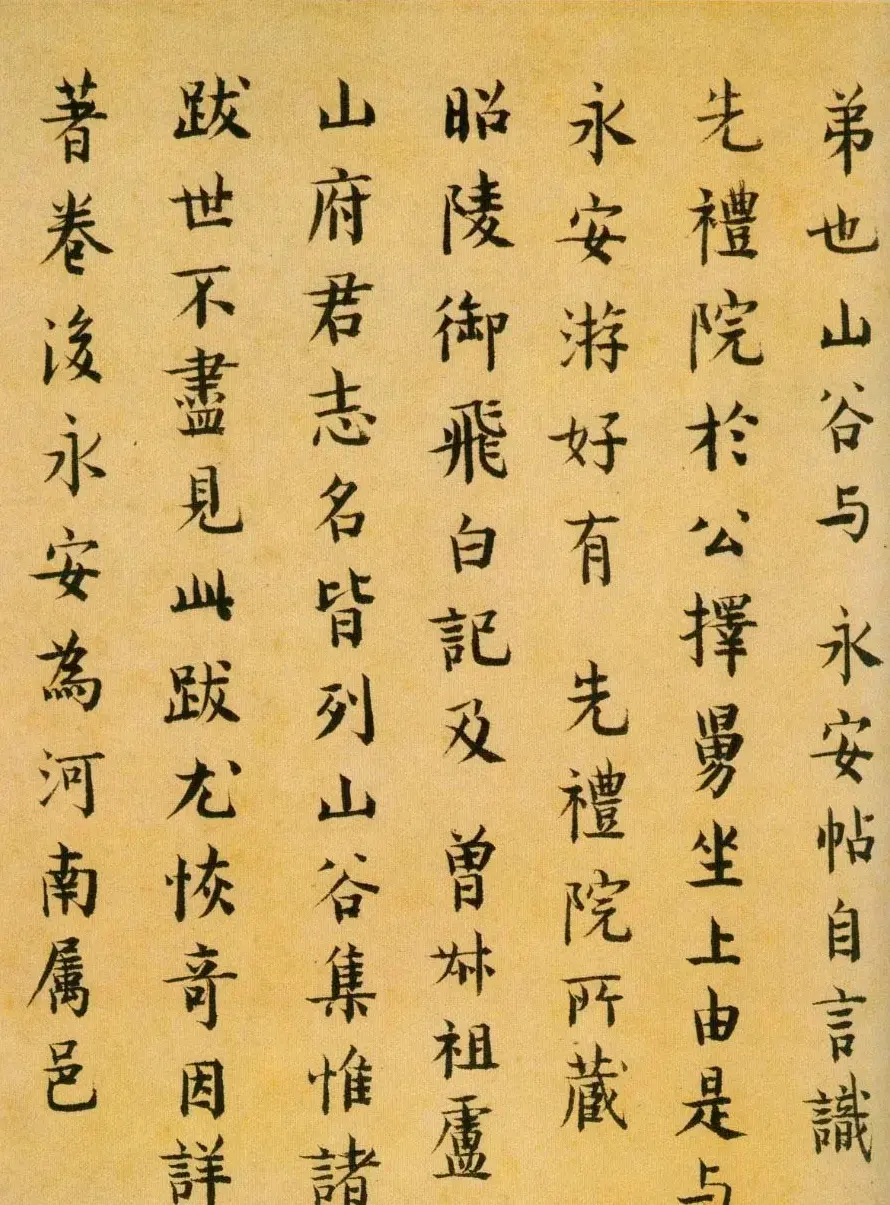 弟也山谷与 永安帖自言識
先禮院於公擇舅坐上由是与
永安游好有 先禮院所藏
昭陵御飛白記及 曾叔祖盧
山府君志名皆列山谷集惟諸
跋世不盡見此跋尤恢奇因詳
著卷後永安為河南属邑